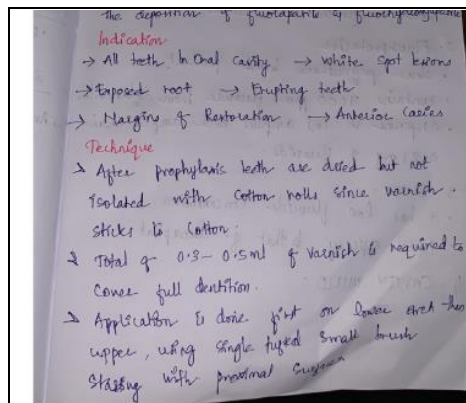 the deposition of fluorapatite & fluorhydroxyapatite
Indication
→ All teeth In Oral Cavity → White Spot lesions
→ Exposed root → Erupting teeth
→ Margins of Restoration → Anterior Caries
Technique
> After prophylaxis teeth are dried but not
isolated with Cotton rolls since varnish
sticks to Cotton.
> Total of 0.3-0.5ml of varnish is required to
Cover full dentition.
> Application is done first on lower arch then
upper, using single tufted small brush
Starting with proximal Surfaces